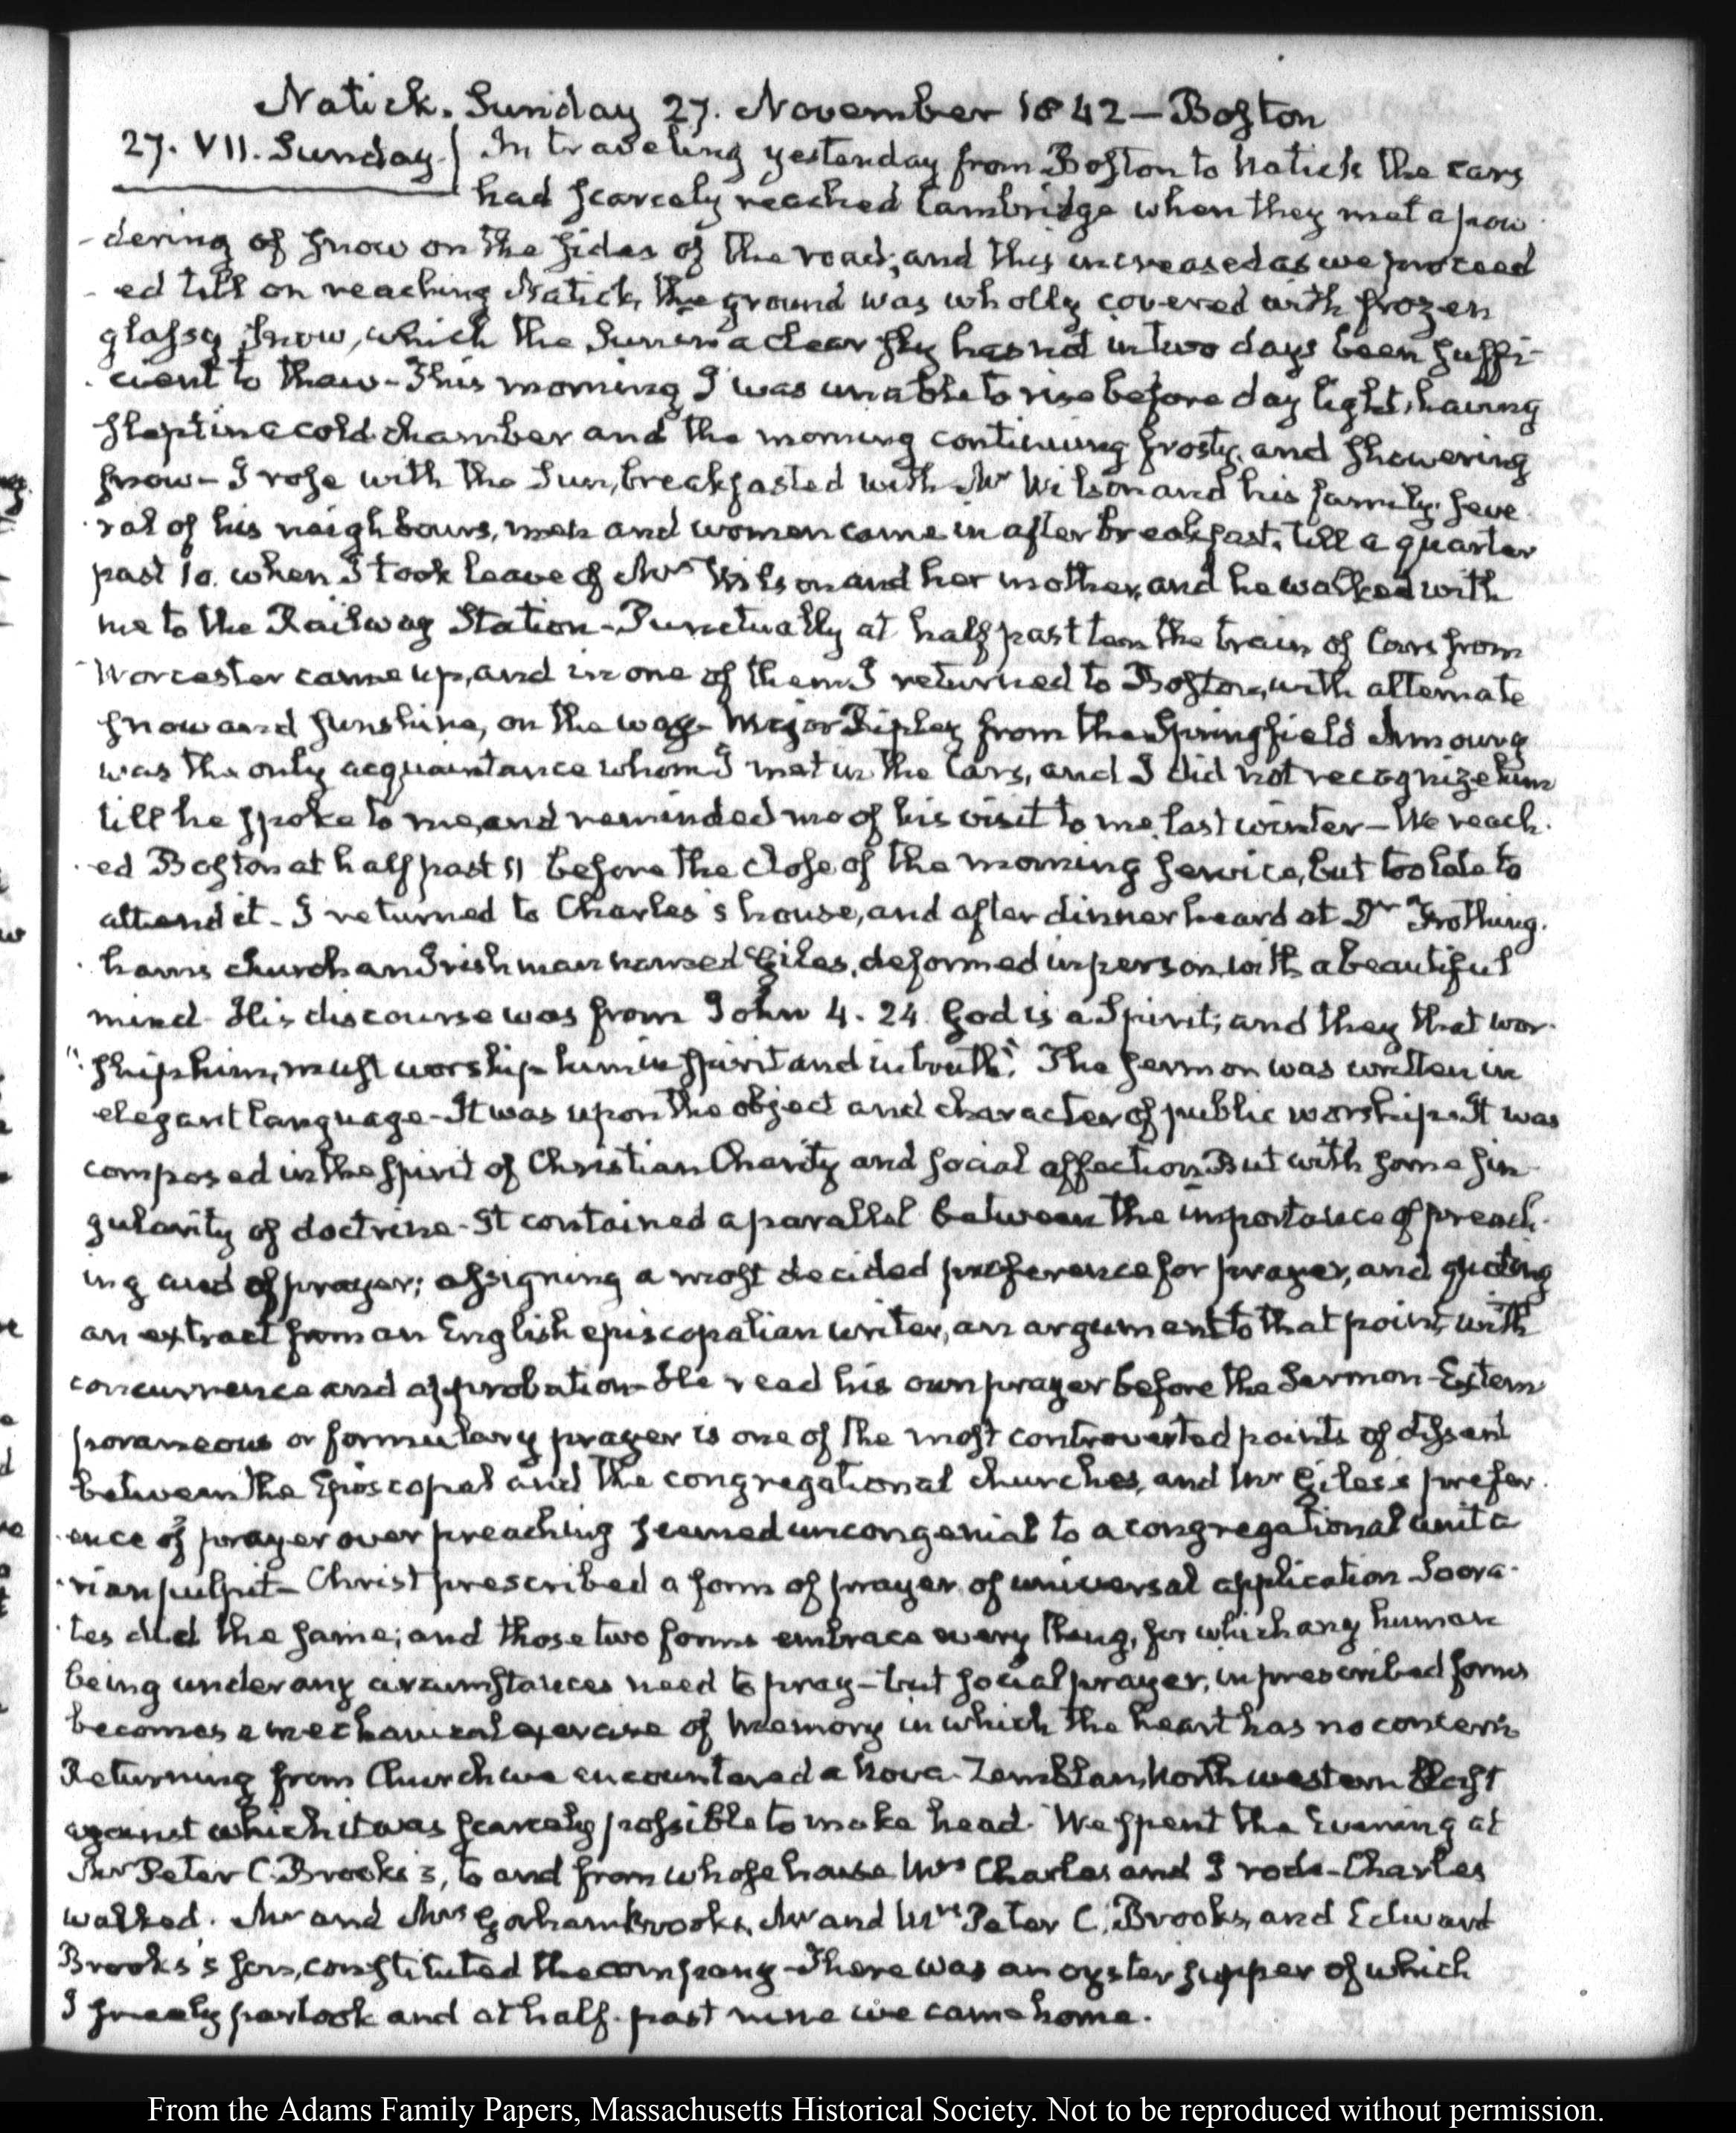 Natick. Sunday 27. November 1842 — Boston
27. VII. Sunday. } In traveling yesterday from Boston to Natick the cars
had scarcely reached Cambridge when they met a pow
-dering of snow on the sides of the road; and this increased as we proceed
-ed till on reaching Natick, the ground was wholly covered with frozen
glassy snow, which the Sun in a clear sky has not in two days been suffi-
cient to thaw - This morning I was unable to rise before day light, having
slept in a cold chamber and the morning continuing frosty, and showering
snow - I rose with the Sun, breakfasted with Mr Wilson and his family. Seve
-ral of his neighbours, men and women came in after breakfast, till a quarter
past 10. when I took leave of Mrs Wilson and her mother, and he walked with
me to the Railway Station - Punctually at half past ten the train of Cars from
Worcester came up, and in one of them I returned to Boston, with alternate
snow and sunshine, on the way - Major Ripley from the Springfield Armoury
was the only acquaintance whom I met in the Cars, and I did not recognize him
till he spoke to me, and reminded me of his visit to me last winter - We reach.
-ed Boston at half past 11 before the close of the morning service, but too late to
attend it - I returned to Charles's house, and after dinner heard at Dr Frothing.
hams church an Irishman named Giles, deformed in person, with a beautiful
mind - His discourse was from John 4. 24. God is a Spirit; and they that wor.
"ship him, must worship him in spirit and in truth." The sermon was written in
elegant language - It was upon the object and character of public worship. It was
composed in the spirit of Christian Charity and social affection. But with some sin-
gularity of doctrine - It contained a parallel between the importance of preach.
ing and of prayer; assigning a most decided preference for prayer, and quoting
an extract from an English episcopalian writer, an argument to that point, with
concurrence and approbation - He read his own prayer before the Sermon - Extem
poraneous or formulary prayer is one of the most controverted points of dissent
between the Episcopal and the congregational churches, and Mr Giles's prefer.
ence of prayer over preaching seemed uncongenial to a congregational unita
-rian pulpit - Christ prescribed a form of prayer of universal application - Socra-
tes did the same; and those two forms embrace every thing, for which any human
being under any circumstances need to pray - but social prayer, in prescribed forms
becomes a mechanical exercise of memory in which the heart has no concern
Returning from Church we encountered a Nova-Zemblan, North western blast
against which it was scarcely possible to make head. We spent the Evening at
Mr Peter C. Brooks's, to and from whose house Mrs Charles and I rode - Charles
walked. Mr and Mrs Gorham Brooks, Mr and Mrs Peter C. Brooks, and Edward
Brooks's son, constituted the company - There was an oyster supper of which
I freely partook and at half. past nine we came home.
From the Adams Family Papers, Massachusetts Historical Society. Not to be reproduced without permission.